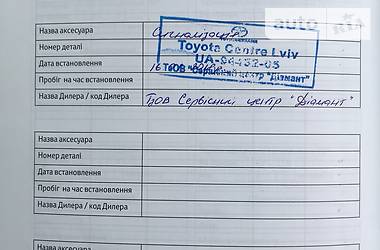 auto RIA
Назва аксесуара Сигналізація
Номер деталі
Toyota Centre Lviv
UA-04432-05
Дата встановлення 16
ТзОВ "Сервісний центр "Діамант"
Пробіг на час встановлення
Назва Дилера / код Дилера ТзОВ Сервісний центр "Діамант"
Назва аксесуара
Номер деталі
Дата встановлення
Пробіг на час встановлення
Назва Дилера / код Дилера
Назва аксесуара